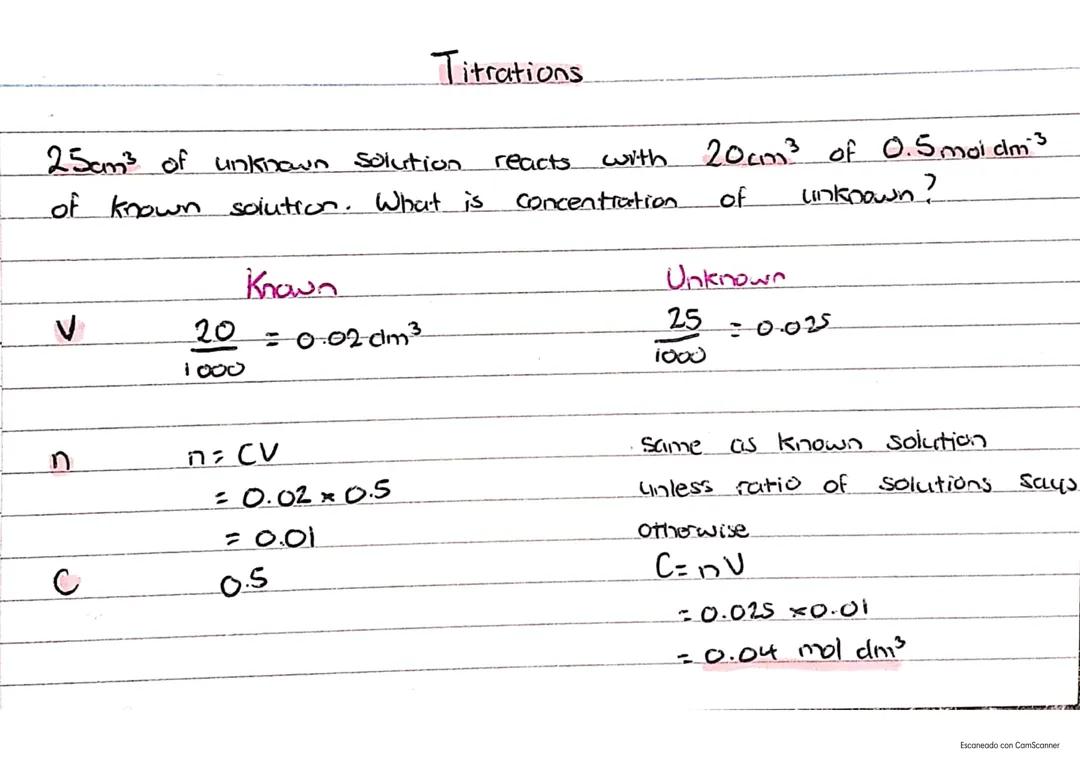 Titrations
25cm³ of unknown solution reacts with 20cm³ of 0.5mol dm⁻³
of known solution. What is concentration of unknown?
Known Unknown
V 20/1000 = 0.02 dm³ 25/1000 = 0.025
n n = CV same as known solution
= 0.02 × 0.5 unless ratio of solutions says
= 0.01 otherwise
C 0.5 C = nV
= 0.025 × 0.01
= 0.04 mol dm³
Escaneado con CamScanner